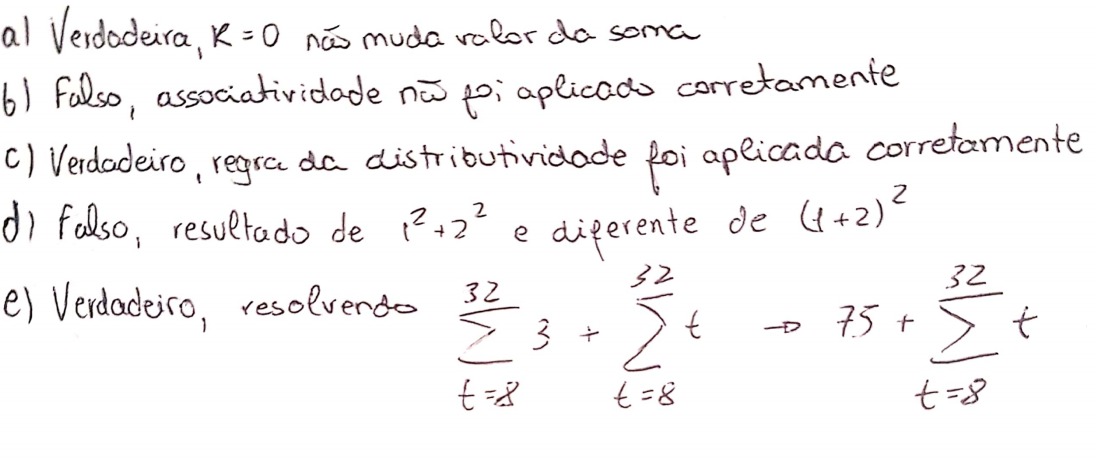 a) Verdadeira, K = 0 não muda valor da soma
b) Falso, associatividade nã foi aplicado corretamente
c) Verdadeiro, regra da distributividade foi aplicada corretamente
d) Falso, resultado de 1² + 2² e diferente de (1+2)²
e) Verdadeiro, resolvendo ∑_{t=8}^{32} 3 + ∑_{t=8}^{32} t → 75 + ∑_{t=8}^{32} t